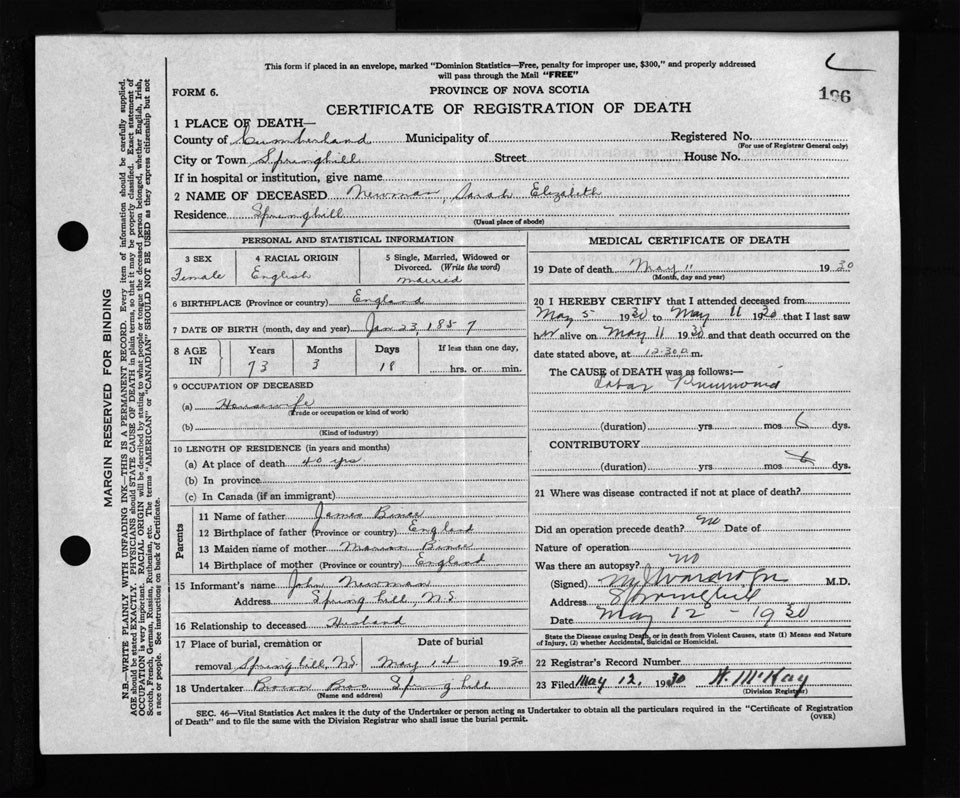 This form if placed in an envelope, marked "Dominion Statistics—Free, penalty for improper use, $300," and properly addressed
will pass through the Mail "FREE"
196
FORM 6.
PROVINCE OF NOVA SCOTIA
CERTIFICATE OF REGISTRATION OF DEATH
1 PLACE OF DEATH—
County of Cumberland Municipality of Registered No.
(For use of Registrar General only)
City or Town Springhill Street House No.
If in hospital or institution, give name
2 NAME OF DECEASED Newman, Sarah Elizabeth
Residence Springhill
(Usual place of abode)
PERSONAL AND STATISTICAL INFORMATION
3 SEX 4 RACIAL ORIGIN 5 Single, Married, Widowed or
Divorced. (Write the word)
Female English Married
6 BIRTHPLACE (Province or country) England
7 DATE OF BIRTH (month, day and year) Jan 23, 1857
8 AGE IN Years Months Days If less than one day,
73 3 18 hrs. or min.
9 OCCUPATION OF DECEASED
(a) Housewife
(Trade or occupation or kind of work)
(b)
(Kind of industry)
10 LENGTH OF RESIDENCE (in years and months)
(a) At place of death 40 yrs
(b) In province
(c) In Canada (if an immigrant)
Parents
11 Name of father James
12 Birthplace of father (Province or country) England
13 Maiden name of mother
14 Birthplace of mother (Province or country) England
15 Informant's name John Newman
Address Springhill, N.S
16 Relationship to deceased Husband
17 Place of burial, cremation or Date of burial
removal Springhill, N.S. May 14 1930
18 Undertaker Brown Bros Springhill
(Name and address)
MEDICAL CERTIFICATE OF DEATH
19 Date of death May 11 1930
(Month, day and year)
20 I HEREBY CERTIFY that I attended deceased from
May 5 1930 to May 11 1930 that I last saw
her alive on May 11 1930 and that death occurred on the
date stated above, at 12.30 a.m.
The CAUSE of DEATH was as follows:—
Lobar Pneumonia
(duration) yrs mos 6 dys.
CONTRIBUTORY
(duration) yrs mos 6 dys.
21 Where was disease contracted if not at place of death?
Did an operation precede death? No Date of
Nature of operation
Was there an autopsy? No
(Signed) M.D.
Address Springhill
Date May 12 - 1930
State the Disease causing Death, or in death from Violent Causes, state (1) Means and Nature
of Injury, (2) whether Accidental, Suicidal or Homicidal.
22 Registrar's Record Number
23 Filed May 12, 1930 N. McKay
(Division Registrar)
SEC. 46—Vital Statistics Act makes it the duty of the Undertaker or person acting as Undertaker to obtain all the particulars required in the "Certificate of Registration
of Death" and to file the same with the Division Registrar who shall issue the burial permit.
(OVER)
MARGIN RESERVED FOR BINDING
N.B.—WRITE PLAINLY WITH UNFADING INK—THIS IS A PERMANENT RECORD. Every item of information should be carefully supplied.
AGE should be stated EXACTLY. PHYSICIANS should STATE CAUSE OF DEATH in plain terms, so that it may be properly classified. Exact statement of
OCCUPATION is very important. RACIAL ORIGIN will be described by stating to what people or tongue the deceased person belonged, whether English, Irish,
Scotch, French, German, Russian, Ruthenian, etc. The terms "AMERICAN" or "CANADIAN" SHOULD NOT BE USED as they express citizenship but not
a race or people. See instructions on back of Certificate.